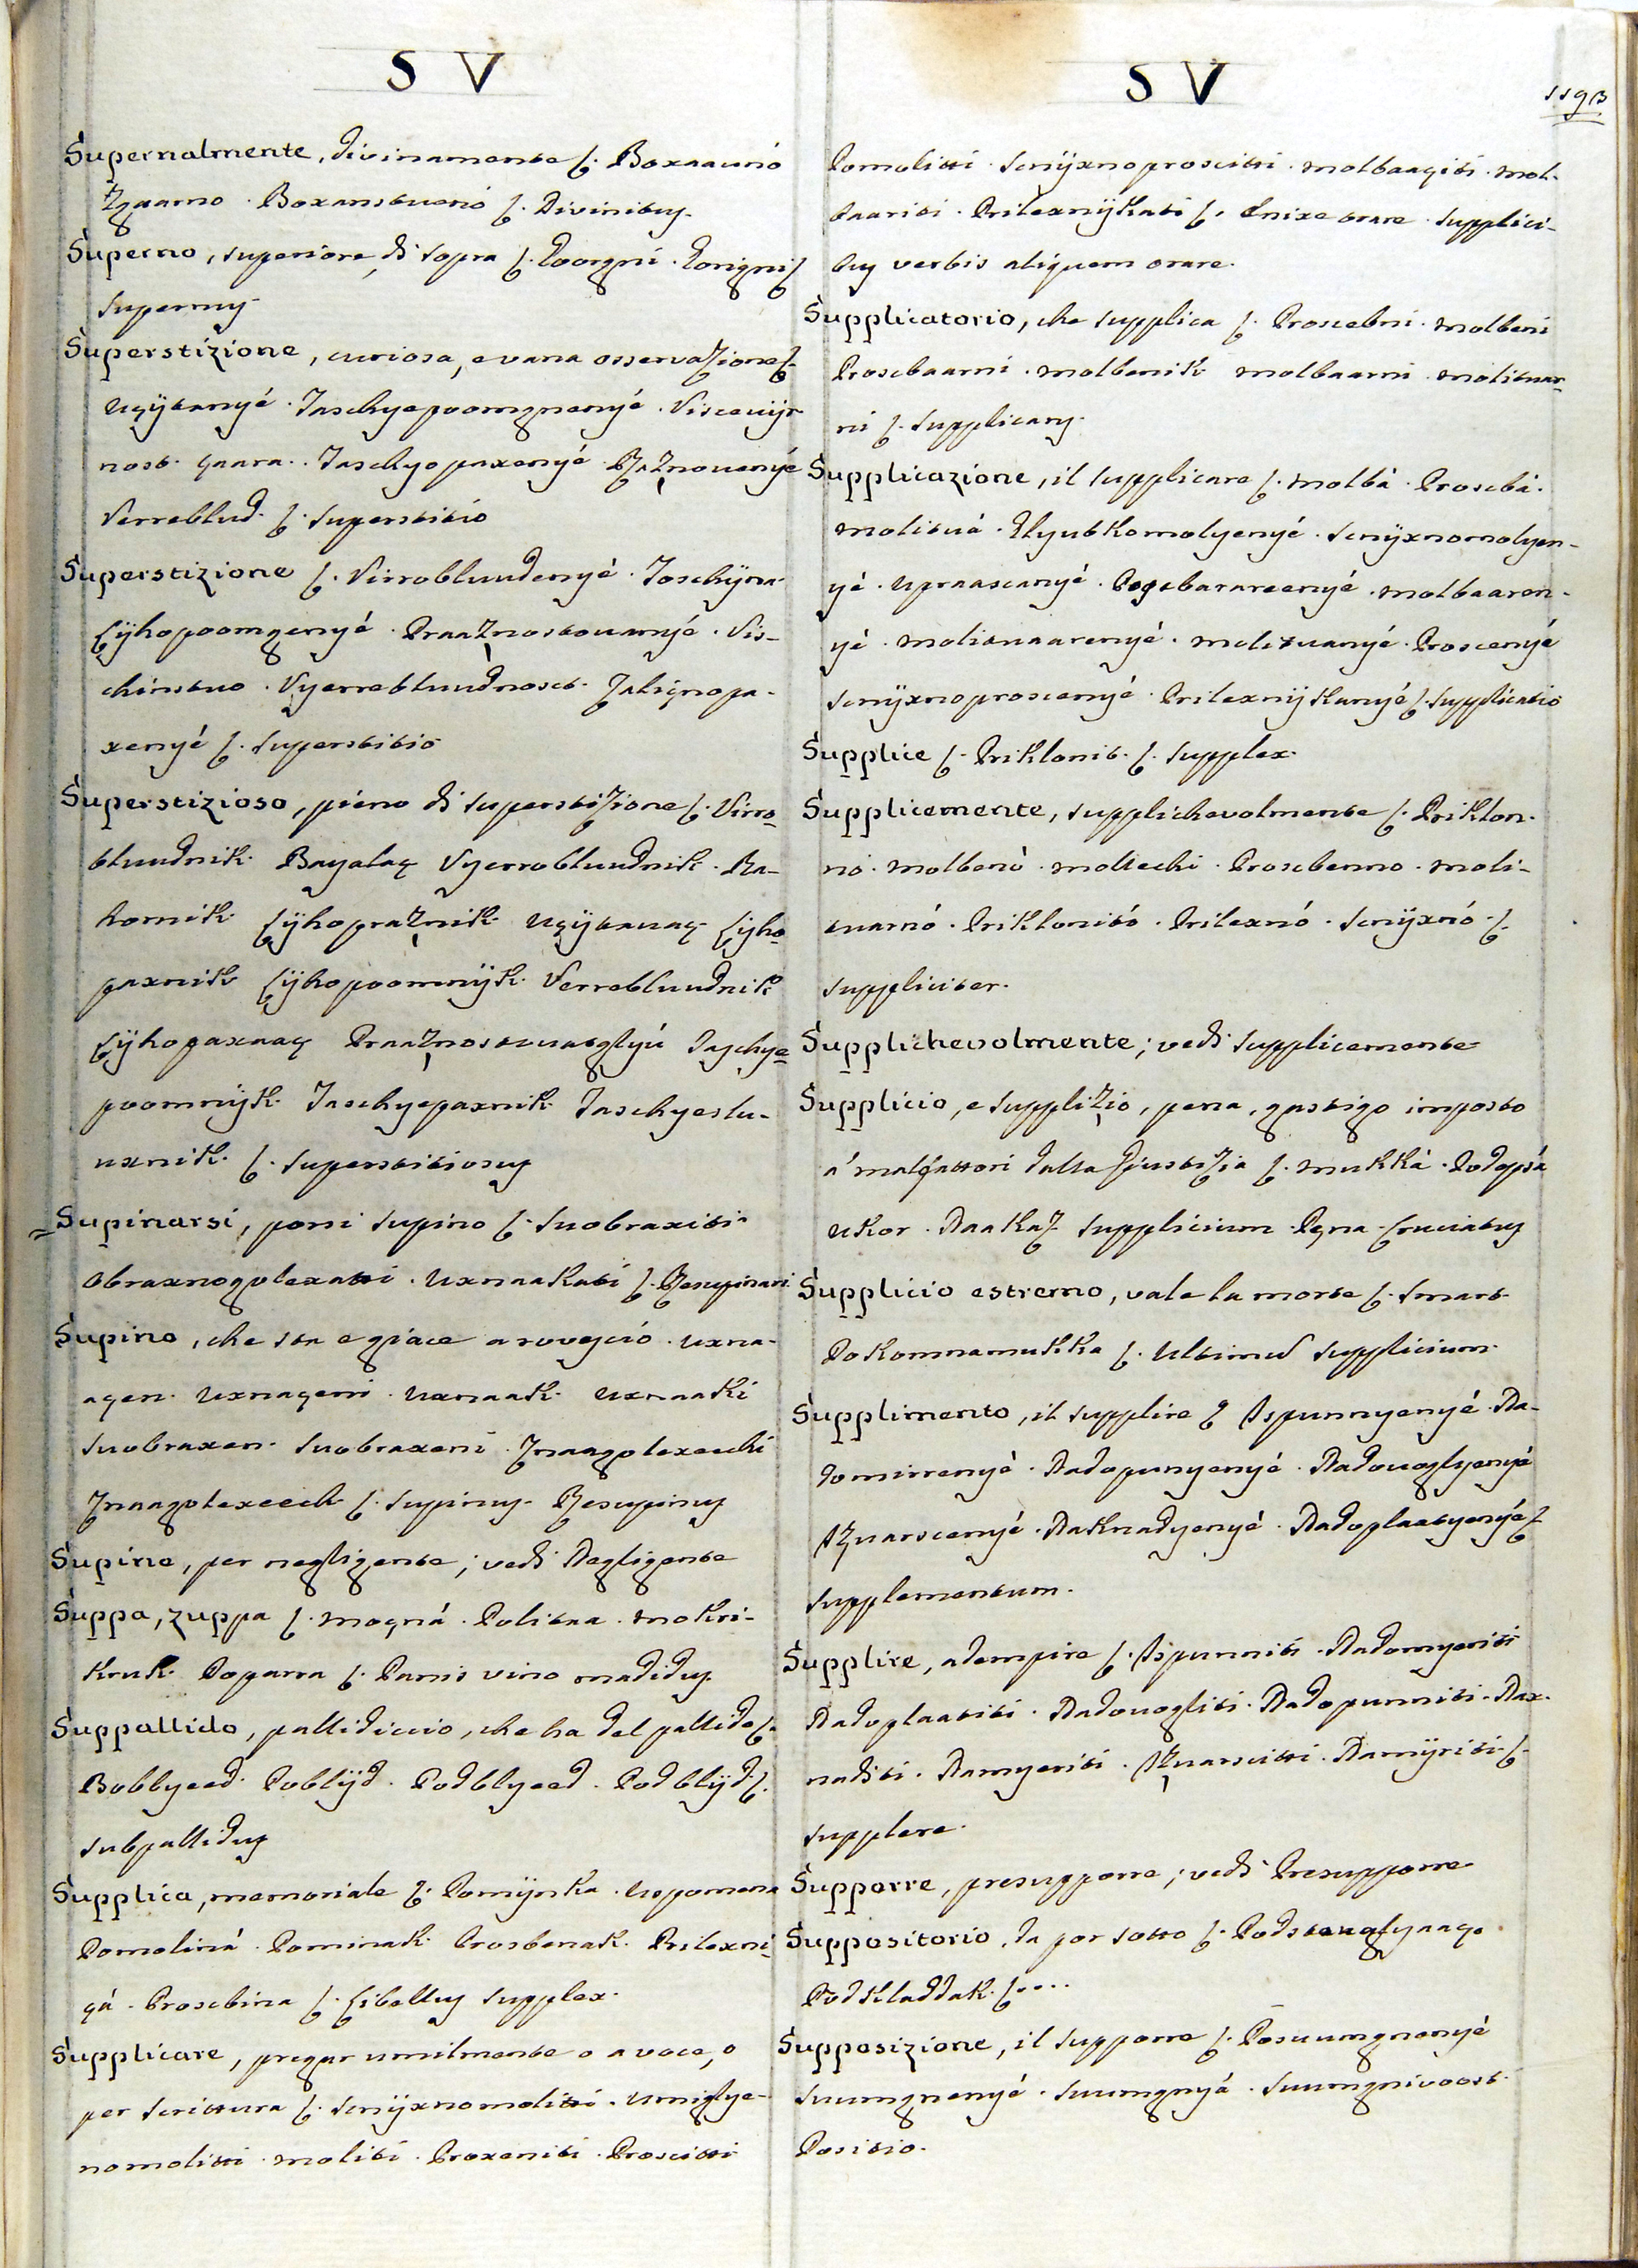 S V
Supernalmente, divinamente ſ. Boxaaunó
Boxanstuenó ſ. Divinitus.
Superno, superiore, di sopra ſ. Goorgni. Gorigni ſ.
Supernus.
Superstizione, curiosa, e vana osservazione ſ.
Uçÿtanyé. Taschyepoomgnenyé.
nost. Taschyopaxenyé
Verreblud. ſ. Superstitio
Superstizione ſ. Virrobluudenyé.
Lÿhopoomgnenyé. Praaznostovanyé. Vis-
chinstuo. Vyerrebluudnost. Taliçnopa-
xenyé ſ. Superstitio
Superstizioso, pieno di superstizione ſ. Virro-
bluudnik. Bayalaç Vyerrobluudnik. Ra-
kornik Lÿhopraznik Uçÿtanaç Lÿho-
paxnik Lÿhopoomnÿk. Verrebluudnik
Lÿhopaxaaç Taschye-
poomnÿk. Taschyepaxnik. Taschyeslu-
uxnik. ſ. Superstitiosus
Supinarsi, porsi supino ſ. Suobraxiti.
Obraxnogolexatti. Uxnaakati ſ. Resupinari
Supino, che sta e giace a rovescio. Uxna-
açen. Uxnaçeni. Uxnaak. Uxnaaki
Suobraxen. Suobraxeni. Znaagolexechi
Znaagolexeech ſ. Supinus. Resupinus
Supine, per negligente; vedi Negligente
Suppa, zuppa ſ. Moçná. Politaa. Mokri-
kruk. Poparra ſ. Panis vino madidus.
Suppallido, pallidiccio, che ha del pallido ſ.
Boblyeed. Poblÿd. Podblyeed. Podblÿd ſ.
Subpallidus
Supplica, memoriale ſ. Pomÿnka. Uspomena
Pomoliná. Pominak. Prosbenak. Prilexni-
çá. Prosebina ſ. Libellus supplex.
Supplicare, pregar umilmente o a voce, o
per scrittura ſ. Snÿxnomolitti. Umiglye-
nomolitti. Moliti. Proxeniti. Proscitti
S V
1193
Pomolitti. Snÿxnoproscitti. Molbaaçiti. Mol-
baariti. Prilexnÿkati ſ. Enixe orare. Supplici-
bus verbis aliquem orare.
Supplicatorio, che supplica ſ. Proscebni. Molbeni
Prosebaarni. Molbenik Molbaarni. Molituar-
ni ſ. Supplicans.
Supplicazione, il supplicare ſ. Molbá. Prosebá.
Molituá. Glyubkomolyenyé. Snÿxnomolyen-
yé. Upraascanyé. Molbaaren-
yé. Molituaarenyé. Molituanyé. Proscenyé
Snÿxnoproscenyé. Prilexnÿkanyé ſ. Supplicatio
Supplice ſ. Priklonit. ſ. Supplex.
Supplicemente, supplichevolmente ſ. Priklon-
no. Molbenó. Mollechi. Prosebenno. Moli-
tuarnó. Priklonitó. Prilexnó. Snÿxnó. ſ.
Suppliciter.
Supplichevolmente; vedi Supplicemente
Supplicio, e supplizio, pena, gastigo imposto
a' malfattori dalla Giustizia ſ. Mukká. Podepsá
Ukor. Naakaz Supplicium. Pęna. Cruciatus
Supplicio estremo, vale la morte ſ. Smart.
Pokonnamukka ſ. Ultimum Supplicium.
Supplimento, il supplire ſ. Ispunnyenyé. Na-
domirrenyé. Nadopunyenyé. Nadouoglyenyé
Izuarscenyé. Naknadyenyé. Nadoplaatyenyé ſ.
Supplementum.
Supplire, adempire ſ. Ispunniti. Nadomyeriti
Nadoplaatiti. Nadouogliti. Nadopunniti. Nax-
naditi. Namyeriti. Izuarscitti. Namÿriti. ſ.
Supplere.
Supporre, presupporre; vedi Presupporre
Suppositorio, da por sotto ſ. Podstauglyaaç.
Podkladdak. ſ....
Supposizione, il supporre ſ. Posuumgnenyé
Suumgnenyé. Suumgnyá. Suumgnivoost.
Positio.